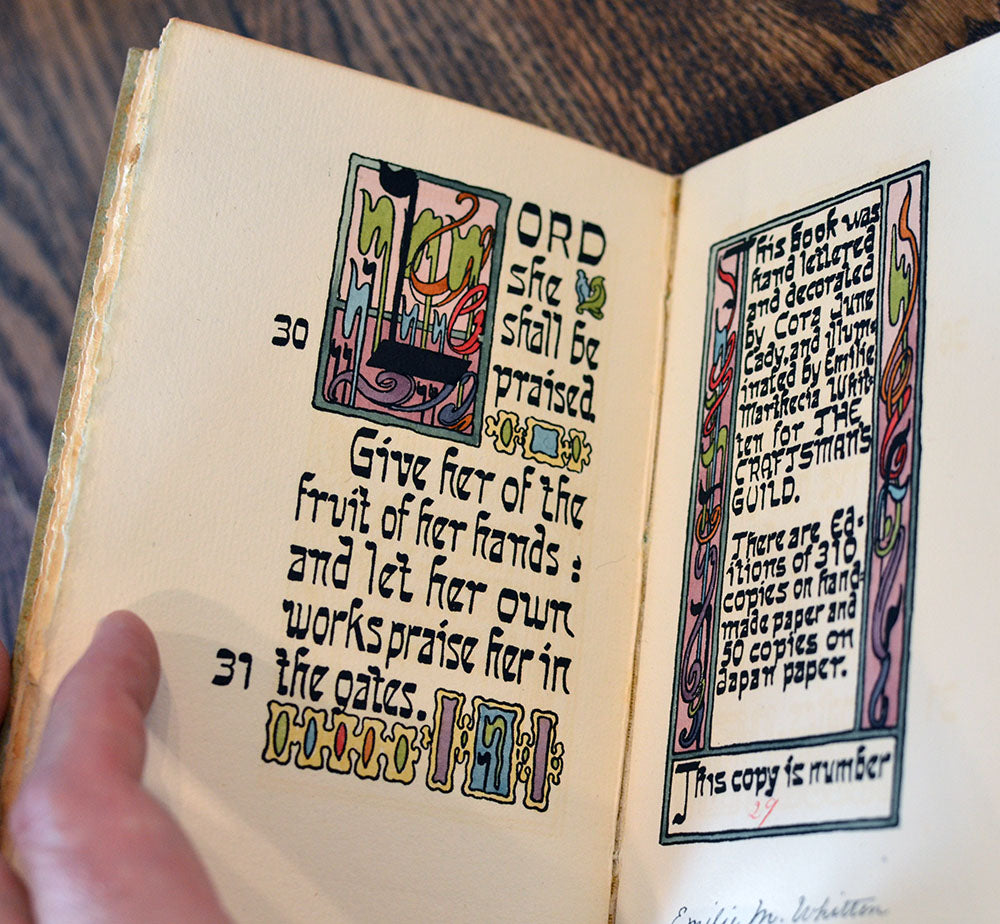 LORD
she
shall be
30
praised
Give her of the
fruit of her hands:
and let her own
works praise her in
31 the gates.
This book was
hand lettered
and decorated
by Cora June
Cady, and illum-
inated by Emilie
Marthecia Whit-
ten for THE
CRAFTSMAN'S
GUILD.
There are Ed-
itions of 310
copies on hand-
made paper and
50 copies on
Japan paper.
This copy is number
29
Emilie M. Whitten